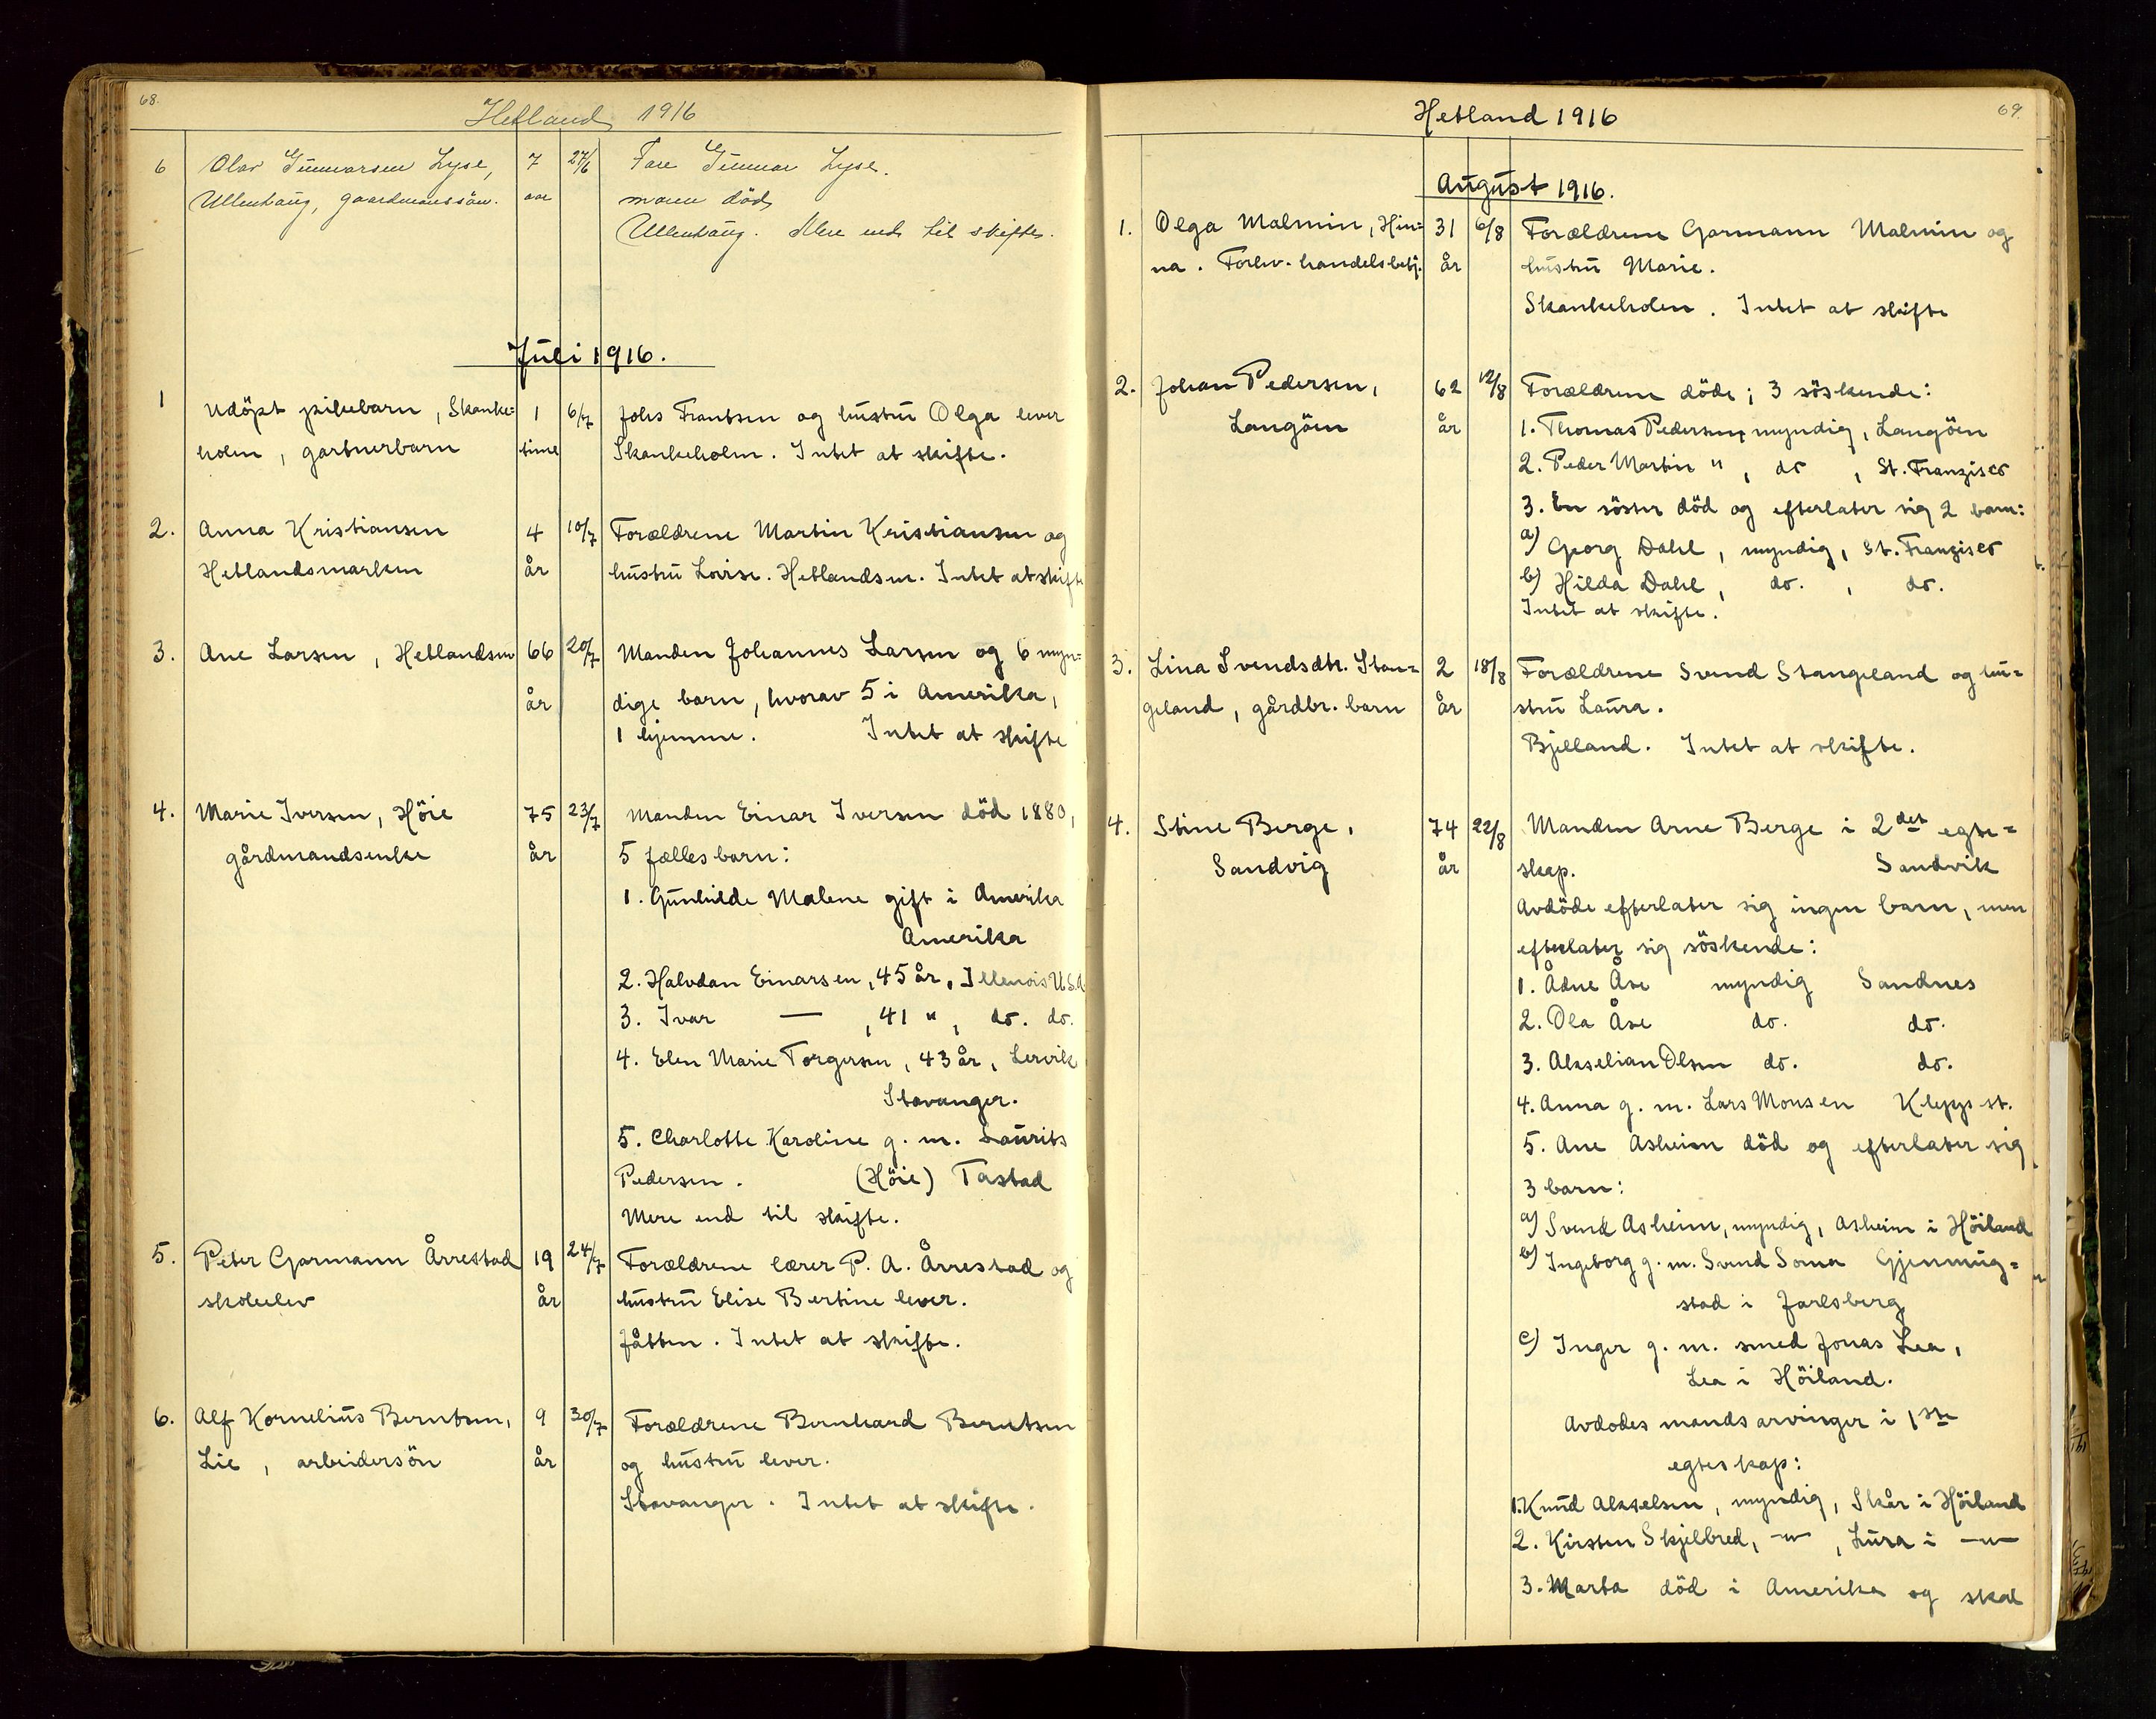 68.
Hetland 1916
6 Olav Gunnarsen Lyse, 7 27/6 Far Gunnar Lyse.
Ullenhaug, gaardmanssøn. aar moren död
Ullenhaug. Mere end til skifte.
Juli 1916.
1 Udöpt pikebarn, Skanke= 1 6/7 Johs Frantsen og hustru Olga lever
holm, gartnerbarn time Skankeholm. Intet at skifte.
2. Anna Kristiansen 4 10/7 Forældrene Martin Kristiansen og
Hetlandsmarken år hustru Lovise. Hetlandsm. Intet at skifte
3. Ane Larsen, Hetlandsm 66 20/7 Manden Johannes Larsen og 6 myn=
år dige barn, hvorav 5 i Amerika,
1 hjemme. Intet at skifte
4. Marie Iversen, Höie 75 23/7 Manden Einar Iversen död 1880,
gårdmandsenke år 5 fælles barn:
1. Gunhilde Malene gift i Amerika
Amerika
2. Halvdan Einarsen, 45 år, Illenois U.S.A
3. Ivar — , 41 " , do. do.
4. Elen Marie Torgersen, 43 år, Lervik
Stavanger.
5. Charlotte Karoline g. m. Laurits
Pedersen. (Höie) Tastad
Mere end til skifte.
5. Peter Garmann Årrestad 19 24/7 Forældrene lærer P. A. Årrestad og
skoleelev år hustru Elise Bertine lever.
Jåtten. Intet at skifte.
6. Alf Kornelius Berntsen, 9 30/7 Forældrene Bernhard Berntsen
Lie, arbeidersön år og hustru lever.
Stavanger. Intet at skifte.
69.
Hetland 1916
August 1916.
1. Olga Malmin, Hin= 31 6/8 Forældrene Garmann Malmin og
na. Forhv. handelsbetj. år hustru Marie.
Skankeholen. Intet at skifte
2. Johan Pedersen, 62 12/8 Forældrene döde; 3 söskende:
Langöen år 1. Thomas Pedersen, myndig, Langöen
2. Peder Martin " , do , St. Franzisco
3. En söster död og efterlater sig 2 barn:
a) Georg Dahl, myndig, St. Franzisco
b) Hilda Dahl, do. , do.
Intet at skifte.
3. Lina Svendsdtr. Stan= 2 18/8 Forældrene Svend Stangeland og hu=
geland, gårdbr. barn år stru Laura.
Bjelland. Intet at skifte.
4. Stine Berge, 74 22/8 Manden Arne Berge i 2det egte=
Sandvig år skap. Sandvik
Avdöde efterlater sig ingen barn, men
efterlater sig söskende:
1. Ådne Åse myndig Sandnes
2. Ola Åse do. do.
3. Akselian Olsen do. do.
4. Anna g. m. Lars Monsen Klepp st.
5. Ane Asheim död og efterlater sig
3 barn:
a) Svend Asheim, myndig, Asheim i Höiland
b) Ingeborg g. m. Svend Soma Gjennug=
stad i Jarlsberg
c) Inger g. m. smed Jonas Lea,
Lea i Höiland.
Avdödes mands arvinger i 1ste
egteskap:
1. Knud Akselsen, myndig, Skår i Höiland
2. Kirsten Skjelbred, -"- , Lura i -"-
3. Marta död i Amerika og skal